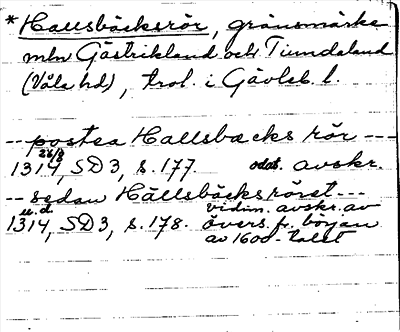 * Hallsbäcksrör, gränsmärke
mln Gästrikland och Tiundaland
(Våla hd), trol. i Gävleb. l.
-- postea Hallsbæcks rör ---
26/8
1314, SD 3, s. 177. odat. avskr.
-- sedan Hällsbäcksröret ---
u.d. vidim. avskr. av
1314, SD 3, s. 178. övers. fr. början
av 1600-talet